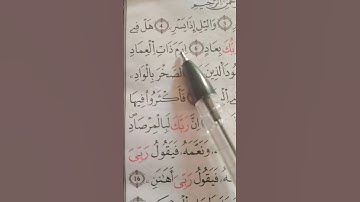 الرَّحِيمِ
وَالَّيْلِ إِذَا يَسْرِ ٤ هَلْ فِي
رَبُّكَ بِعَادٍ إِرَمَ ذَاتِ الْعِمَادِ
الَّذِينَ الصَّخْرَ بِالْوَادِ
فَأَكْثَرُوا فِيهَا
إِنَّ رَبَّكَ لَبِالْمِرْصَادِ
وَنَعَّمَهُ فَيَقُولُ رَبِّي
فَيَقُولُ رَبِّي أَهَٰنَنِ 16